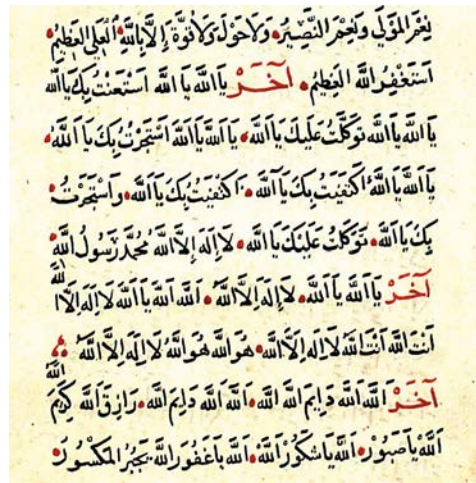 نِعْمَ الْمَوْلَى وَنِعْمَ النَّصِيرُ وَلَا حَوْلَ وَلَا قُوَّةَ إِلَّا بِاللَّهِ الْعَلِيِّ الْعَظِيمِ
اَسْتَغْفِرُ اللَّهَ الْعَظِيمَ آخَرْ يَا اَللَّه يَا اَللَّه اسْتَعَنْتُ بِكَ يَا اَللَّه
يَا اَللَّه يَا اَللَّه تَوَكَّلْتُ عَلَيْكَ يَا اَللَّه يَا اَللَّه يَا اَللَّه اسْتَجَرْتُ بِكَ يَا اَللَّه
يَا اَللَّه يَا اَللَّه اكْتَفَيْتُ بِكَ يَا اَللَّه اكْتَفَيْتُ بِكَ يَا اَللَّه وَاسْتَجَرْتُ
بِكَ يَا اَللَّه تَوَكَّلْتُ عَلَيْكَ يَا اَللَّه لَا إِلَهَ إِلَّا اللَّهُ مُحَمَّدٌ رَسُولُ اللَّهِ
آخَرْ يَا اَللَّه يَا اَللَّه لَا إِلَهَ إِلَّا اللَّهُ اَللَّه اَللَّه يَا اَللَّه لَا إِلَهَ إِلَّا اللَّه
اَنْتَ اللَّه اَنْتَ اللَّه لَا إِلَهَ إِلَّا اللَّه هُوَ اللَّه هُوَ اللَّه لَا إِلَهَ إِلَّا اللَّه
آخَرْ اَللَّه اَللَّه دَايِم اَللَّه اَللَّه اَللَّه اَللَّه دَايِم اَللَّه رَازِق اَللَّه كَرِيم اَللَّه
اَللَّه يَا صَبُورْ اَللَّه يَا شَكُورْ اَللَّه اَللَّه يَا غَفُورْ اَللَّه يَجْبُرُ الْمَكْسُورْ